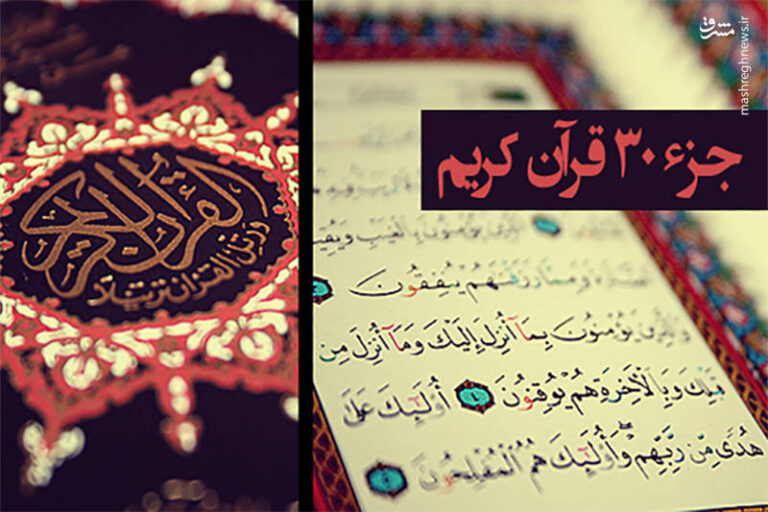 مشرق
mashreghnews.ir
جزء ۳۰ قرآن کریم
القرآن الكريم
ورتل القرآن ترتيلا
يُؤْمِنُونَ بِالْغَيْبِ وَيُقِيمُ
وَمِمَّا رَزَقْنَهُمْ يُنْفِقُونَ
وَالَّذِينَ يُؤْمِنُونَ بِمَا أُنْزِلَ إِلَيْكَ وَمَا أُنْزِلَ مِنْ
قَبْلِكَ وَبِالْآخِرَةِ هُمْ يُوقِنُونَ ٤ أُولَئِكَ عَلَى
هُدًى مِنْ رَبِّهِمْ وَأُولَئِكَ هُمُ الْمُفْلِحُونَ ٥